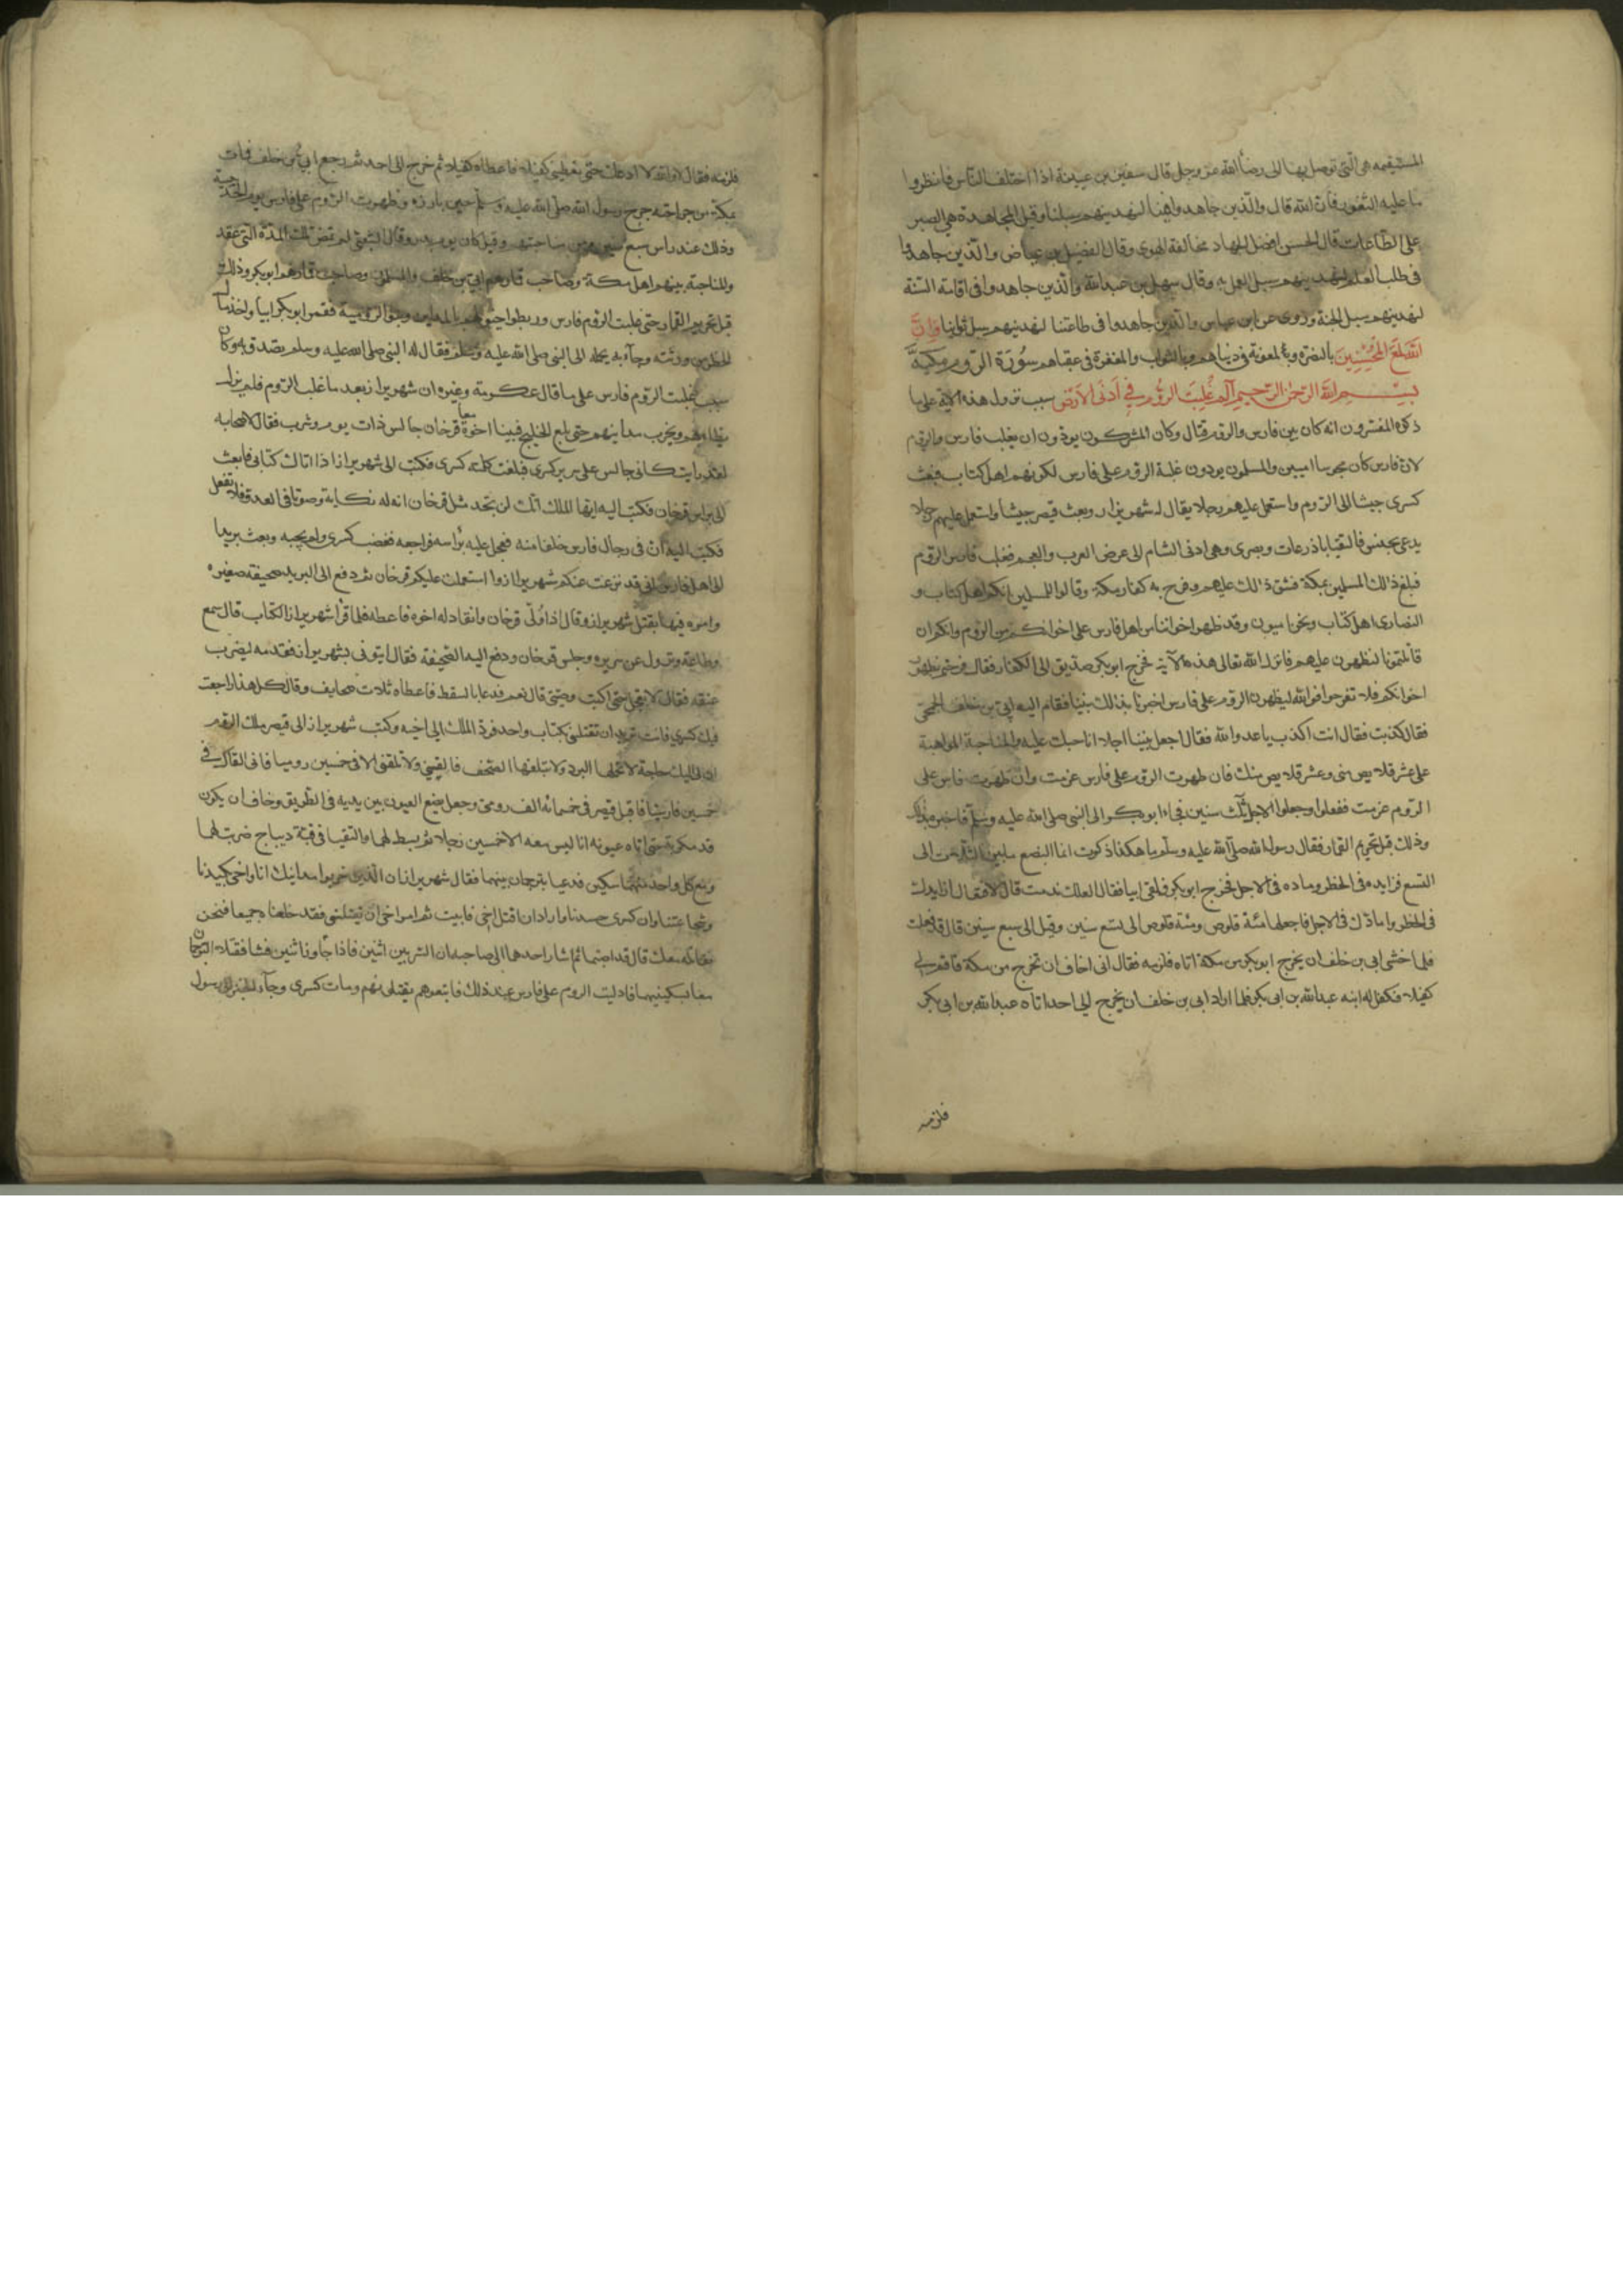 المستقيمه هى الّتى توصل بها الى رضاء الله عزّ وجلّ قال سفين بن عيينة اذا اختلف النّاس فانظروا
ما عليه الثغور فانّ الله قال والّذين جاهدوا فينا لنهدينهم سبلنا وقيل المجاهدة هى الصبر
على الطّاعات قال الحسن افضل الجهاد مخالفة الهوى وقال الفضيل بن عياض والّذين جاهدوا
فى طلب العلم لنهدينهم سبل العمل به وقال سهل بن عبد الله والّذين جاهدوا فى اقامة السّنّة
لنهدينهم سبل الجنة وروى عن ابن عباس والّذين جاهدوا فى طاعتنا لنهدينهم سبل ثوابنا وَاِنَّ
اللّٰهَ لَمَعَ الْمُحْسِنِينَ بالنصرة وبالمعونة فى دنياهم وبالثواب والمغفرة فى عقباهم سُورَة الرّوم مكيّة
بسم الله الرّحمٰن الرّحيم آلم غُلِبَتِ الرُّوم فِي اَدنَى الاَرضِ سبب نزول هذه الاية على ما
ذكره المفسّرون انه كان بين فارس والروم قتال وكان المشركون يودّون ان يغلب فارس والروم
لانّ فارس كان مجوسا اميين والمسلمون يودون غلبة الروم على فارس لكونهم اهل كتاب فبعث
كسرى جيشا الى الرّوم واستعمل عليهم رجلا يقال له شهريزار وبعث قيصر جيشا واستعمل عليهم رجلا
يدعى بحنس فالتقيا باذرعات وبصرى وهى ادنى الشام الى عرض العرب والعجم فغلب فارس الروم
فبلغ ذالك المسلمين بمكة فشقّ ذالك عليهم وفرح به كفار مكة وقالوا للمسلمين انكم اهل كتاب و
النصارى اهل كتاب ونحن اميون وقد ظهر اخواننا من اهل فارس على اخوانكم من الروم وانكم ان
قاتلتمونا لنظهرن عليهم فانزل الله تعالى هذه الآية فخرج ابو بكر صديق الى الكفار فقال فرحتم بظهور
اخوانكم فلا تفرحوا فوالله ليظهرن الروم على فارس اخبرنا بذالك نبينا فقام اليه ابى بن خلف الجمحى
فقال كذبت فقال انت اكذب يا عدو الله فقال اجعل بيننا اجلا اناحبك عليه والمناحبة المراهنة
على عشر قلايص منى وعشر قلايص منك فان ظهرت الروم على فارس غرمت وان ظهرت فارس على
الروم غرمت ففعلوا وجعلوا الاجل ثلٰث سنين فجاء ابو بكر الى النبى صلى الله عليه وسلّم فاخبره بذلك
وذلك قبل تحريم القمار فقال رسول الله صلّى الله عليه وسلّم ما هكذا ذكرت انما البضع ما بين الثلٰث الى
التسع فزايده فى الخطر وماده فى الاجل فخرج ابو بكر فلقى ابيا فقال لعلك ندمت قال لا فقال ازايدك
فى الخطر وامادّك فى الاجل فاجعلها مئة قلوص ومئة قلوص الى تسع سنين وقيل الى سبع سنين قال قد فعلت
فلما خشى ابى بن خلف ان يخرج ابو بكر من مكة اتاه فلزمه فقال انى اخاف ان تخرج من مكة فاقم لى
كفيلا فكفل له ابنه عبد الله بن ابى بكر فلما اراد ابى بن خلف ان يخرج الى احد اتاه عبد الله بن ابى بكر
فلزمه
فلزمه فقال لا والله لا ادعك حتى تعطينى كفيلا فاعطاه كفيلا ثم خرج الى احد ثم رجع ابى بن خلف فمات
بمكة من جراحته جرح رسول الله صلى الله عليه وسلّم حين بارزه وظهرت الرّوم على فارس يوم الحديبية
وذلك عند راس سبع سنين من مناحبتهم وقيل كان يوم بدر وقال الشعبى لم تمض تلك المدّة التى عقد
والمناحبة بينهم اهل مكة وصاحب قمارهم ابى بن خلف والمسلمون وصاحب قمارهم ابو بكر وذلك
قبل تحريم القمار حتى غلبت الروم فارس وربطوا خيولهم بالمداين وبنوا الرومية فقمر ابو بكر ابيا واخذ مال
الخطر من ورثته وجاء به يحمله الى النبى صلى الله عليه وسلم فقال له النبى صلى الله عليه وسلم تصدق به وكان
سبب غلبت الروم فارس على ما قال عكرمة وغيره ان شهريراز بعد ما غلب الروم فلم يزل
يطاءهم ويخرب مداينهم حتى بلغ الخليج فبينا اخوه فرخان جالس ذات يوم وشرب فقال لاصحابه
لقد رايت كانى جالس على سرير كسرى فبلغت كلمته كسرى فكتب الى شهريراز اذا اتاك كتابى فابعث
الى براس فرخان فكتب اليه ايها الملك انك لن تجد مثل فرخان ان له نكاية وصوتا فى العدو فلا تفعل
فكتب اليه ان فى رجال فارس خلفا منه فعجل عليه براسه فراجعه فغضب كسرى ولم يجبه وبعث بريدا
الى اهل فارس انى قد نزعت عنكم شهريراز واستعملت عليكم فرخان ثم دفع الى البريد صحيفة صغيرة
وامره فيها بقتل شهريراز وقال اذا ولّى فرخان وانقاد له اخوه فاعطه فلما قرأ شهريراز الكتاب قال سمع
وطاعة ونزل عن سريره وجلس فرخان ودفع اليه الصحيفة فقال ايتونى بشهريراز فقدمه ليضرب
عنقه فقال لا تعجل حتى اكتب وصيتى قال نعم فدعا بالسقط فاعطاه ثلاث صحايف وقال كل هذا راجعت
فيك كسرى فانت تريد ان تقتلنى بكتاب واحد فرد الملك الى اخيه وكتب شهريراز الى قيصر ملك الروم
ان لى اليك حاجة لا تحملها البرد ولا تبلغها الصحف فالقينى ولا تلقنى الا فى خمسين روميا فانى القاك فى
خمسين فارسيا فاقبل قيصر فى خمسمائة الف رومى وجعل يضع العيون بين يديه فى الطريق وخاف ان يكون
قد مكر به حتى اتاه عيونه انا ليس معه الا خمسين رجلا ثم بسط لهما والتقيا فى قبة ديباج ضربت لهما
ومع كل واحد منهما سكين فدعيا بترجمان بينهما فقال شهريراز ان الّذين خربوا مداينك انا واخى بكيدنا
وشجاعتنا وان كسرى حسدنا واراد ان اقتل اخى فابيت ثم امر اخى ان يقتلنى فقد خلعناه جميعا فنحن
نقاتله معك قال قد اصبتما ثم اشار احدهما الى صاحبه ان السّر بين اثنين فاذا جاوز اثنين فشا فقتلا الترجمان
معا بسكينيهما فاديلت الروم على فارس عند ذلك فاتبعوهم يقتلونهم ومات كسرى وجاء الخبر الى رسول